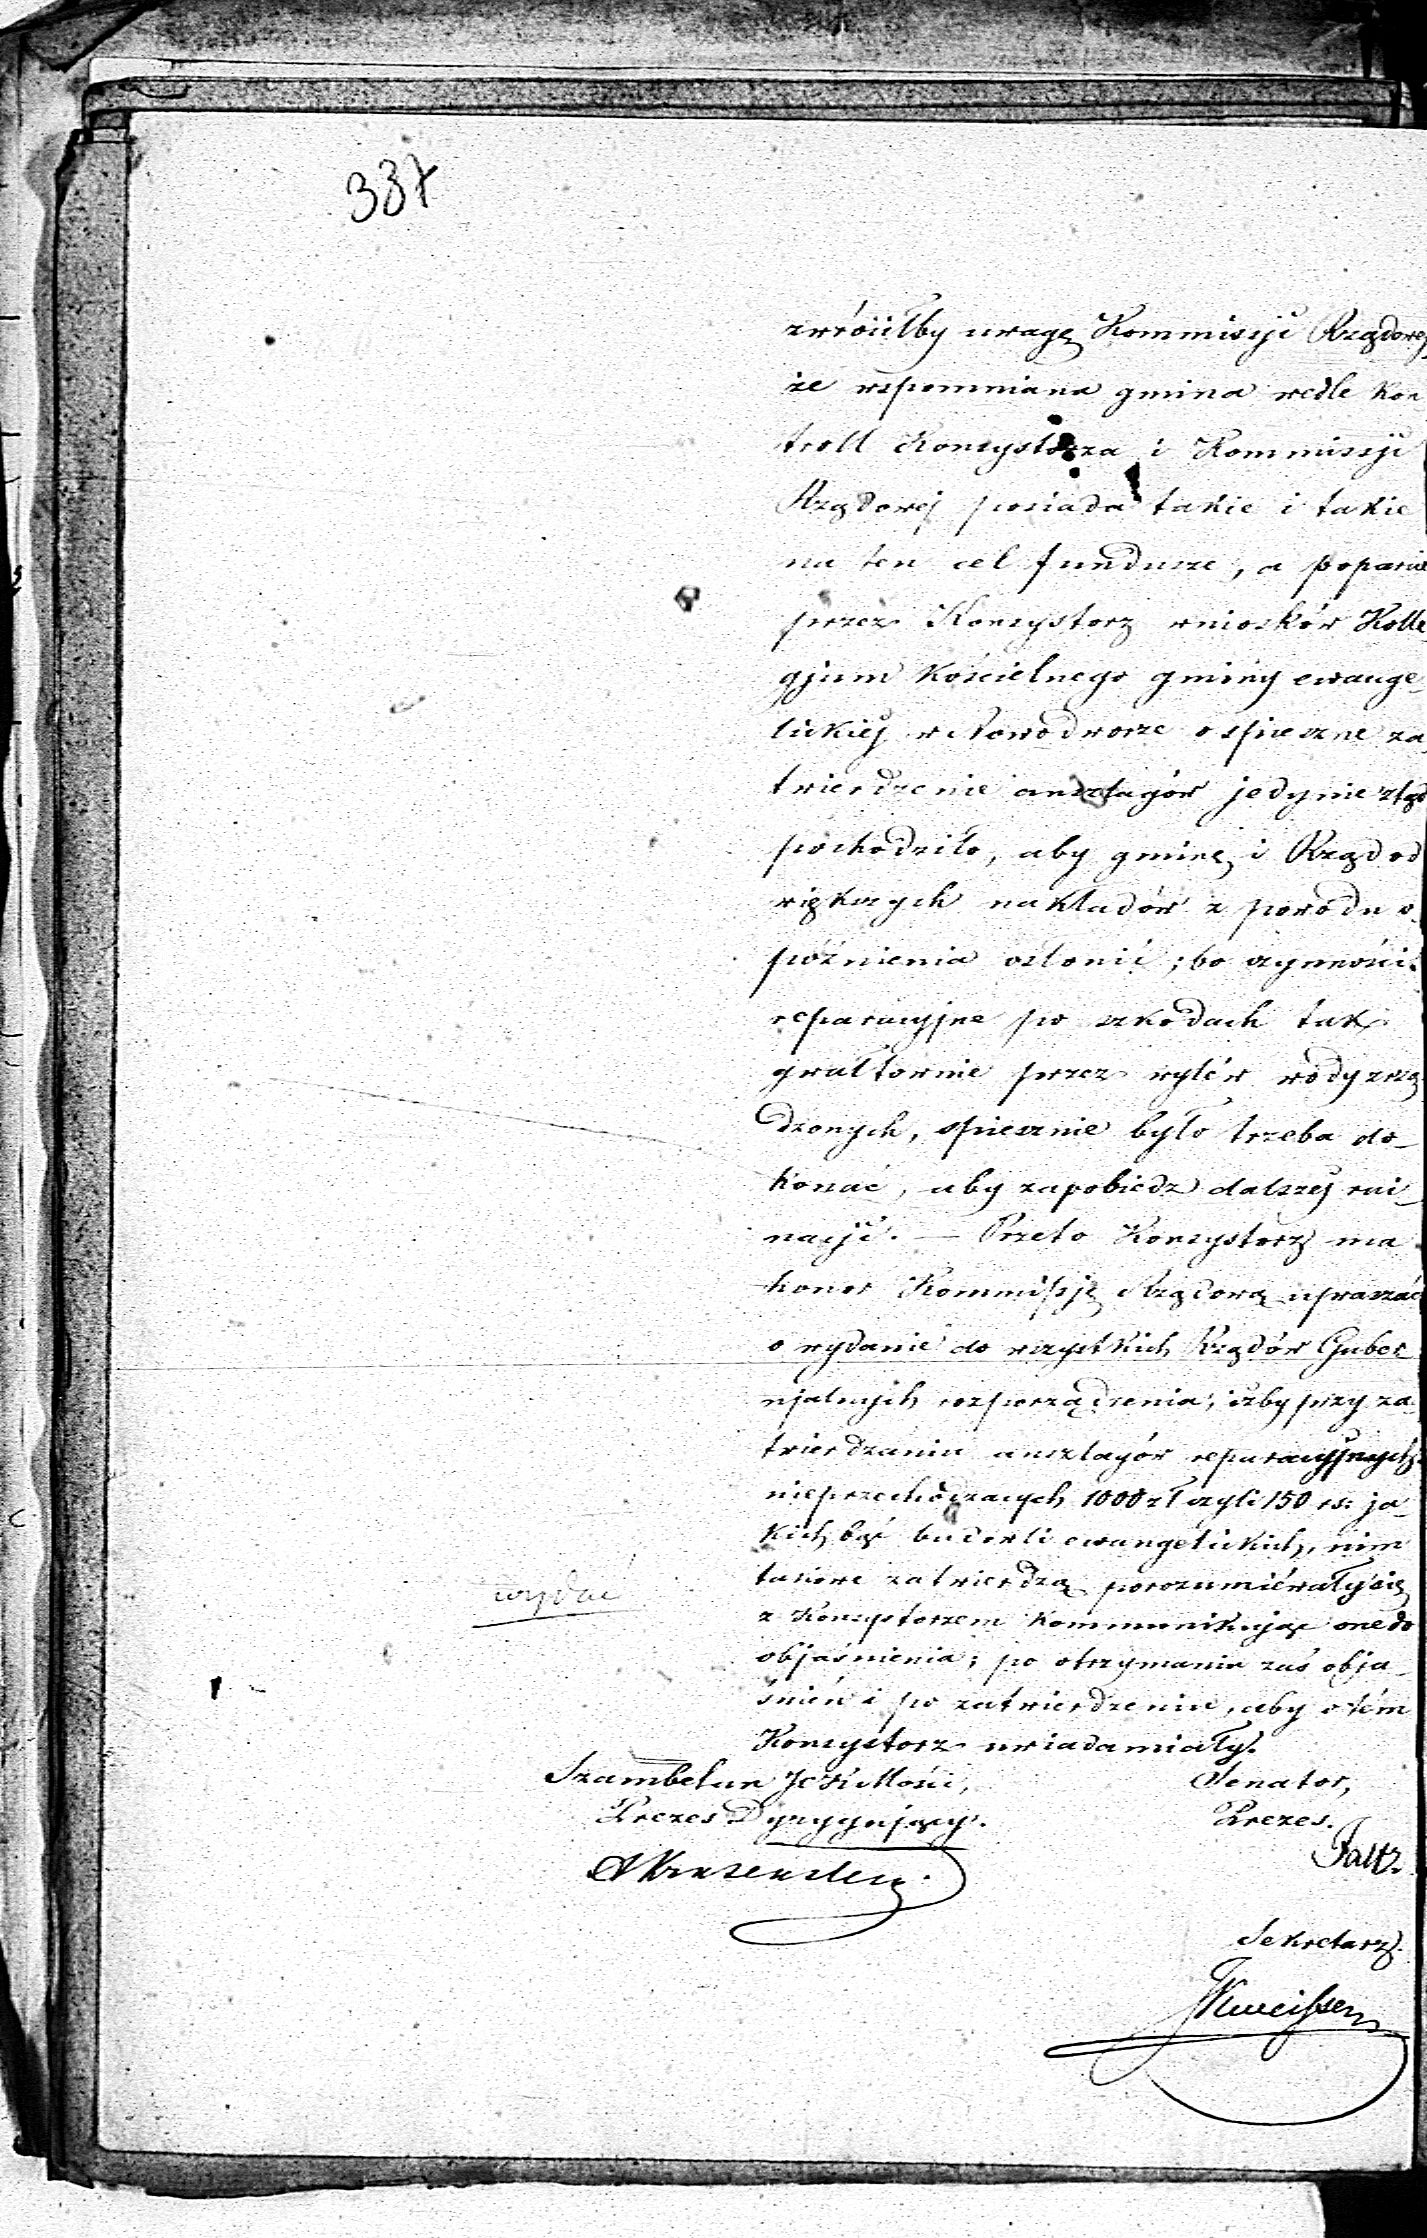 337
zwróciłby uwagę Kommissyi Rządowej
że wspomniana gmina wedle kon
troll Konsystorza i Kommissyi
Rządowej posiada takie i takie
na ten cel fundusze, a poparcie
przez Konsystorz wniosków Kolle
gjum Kościelnego gminy ewange-
lickiej w Nowodworze o spieszne za
twierdzenie anszlagów jedynie ztąd
pochodziło, aby gminę i Rząd od
większych nakładów z powodu o
późnienia osłonić; bo czynności
reparacyjne po szkodach tak
gwałtownie przez wylew wody zrzą
dzonych, spiesznie było trzeba do-
konać, aby zapobiedz dalszej rui-
nacyi. — Przeto Konsystorz ma
honor Kommissję Rządową upraszać
o wydanie do wszystkich Rządów Guber
njalnych rozporządzenia; iżby przy za
twierdzaniu anszlagów reparacyjnych
nieprzechodzących 1000 zł czyli 150 rs: ja-
kich bąć budowli ewangelickich, nim
takowe zatwierdzą porozumiéwały się
z Konsystorzem kommunikując one do
objaśnienia; po otrzymaniu zaś obja-
śnień i po zatwierdzeniu, aby o tém
Konsystorz uwiadamiały.
wydać
Szambelan JCKMości, Senator,
Prezes Dyrygujący. Prezes.
Faltz.
Sekretarz